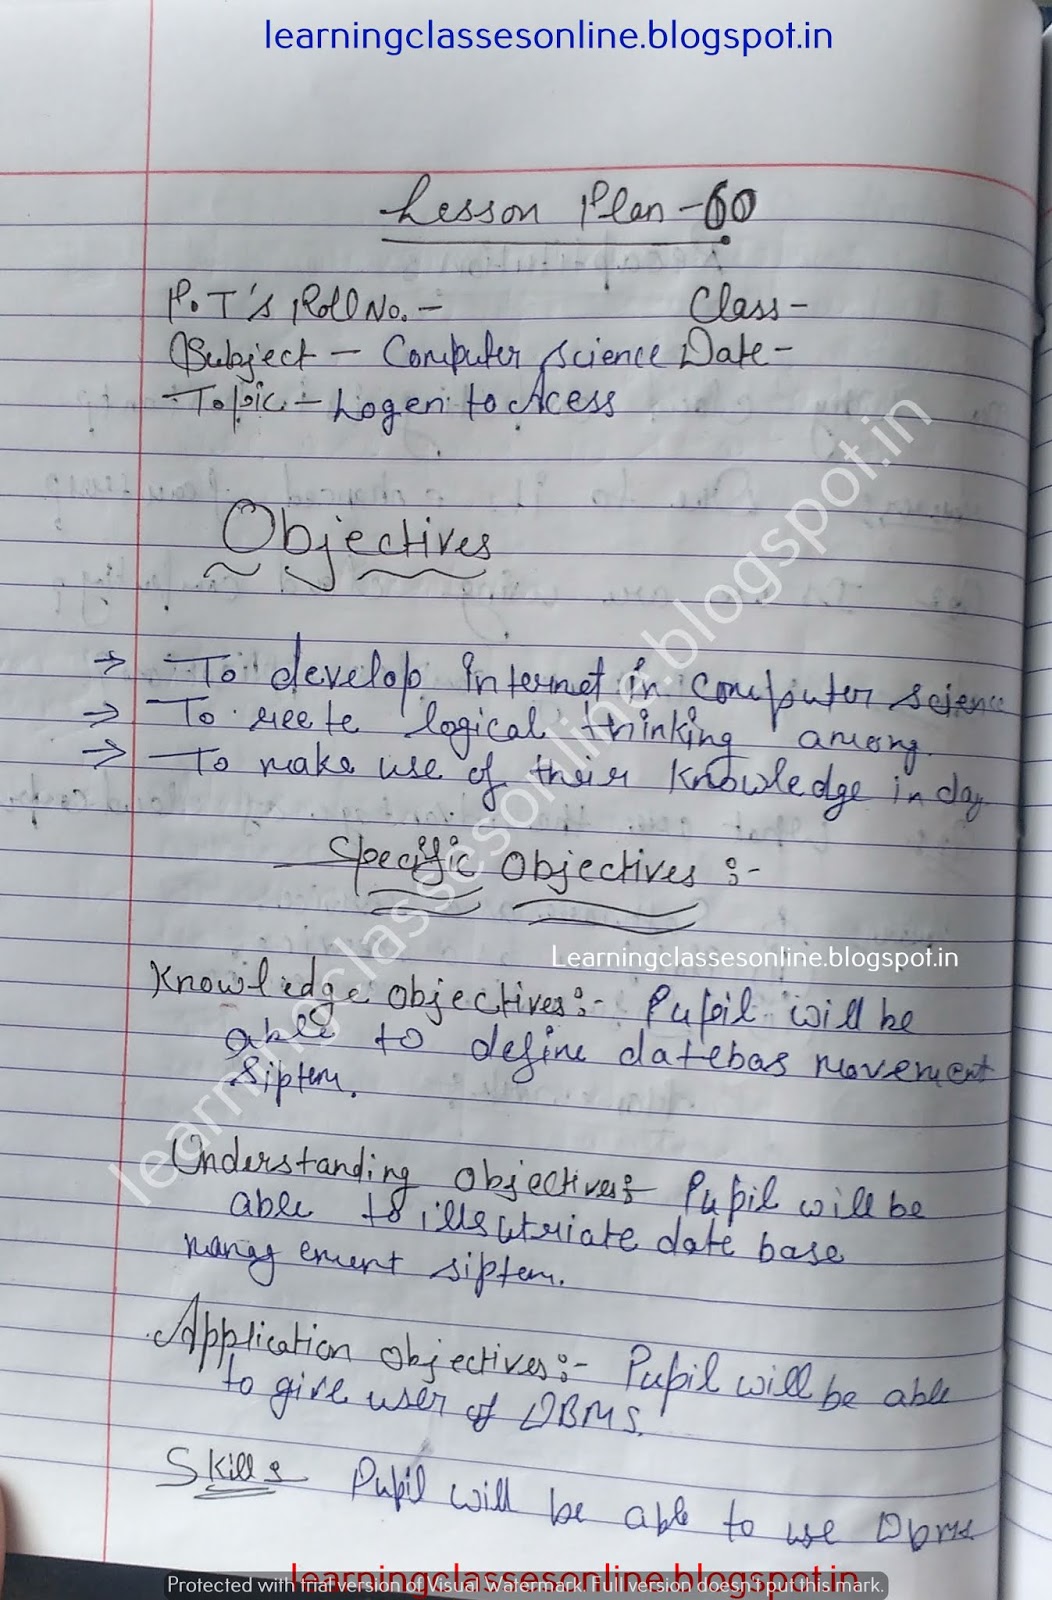 learningclassesonline.blogspot.in
Lesson Plan - 60
P.T's Roll No. - Class -
Subject - Computer science Date -
Topic - Logen to Acess
Objectives
→ To develop internet in computer science
→ To reete logical thinking among.
→ To make use of their knowledge in day
Specific Objectives :-
Learningclassesonline.blogspot.in
Knowledge objectives:- Pupil will be
able to define datebas movement
siptem.
Understanding objectives:- Pupil will be
able to illsutriate date base
management siptem.
Application objectives:- Pupil will be able
to give user of DBMS.
Skills Pupil will be able to use Dbms
learningclassesonline.blogspot.in
learningclassesonline.blogspot.in
Protected with trial version of Visual Watermark. Full version doesn't put this mark.